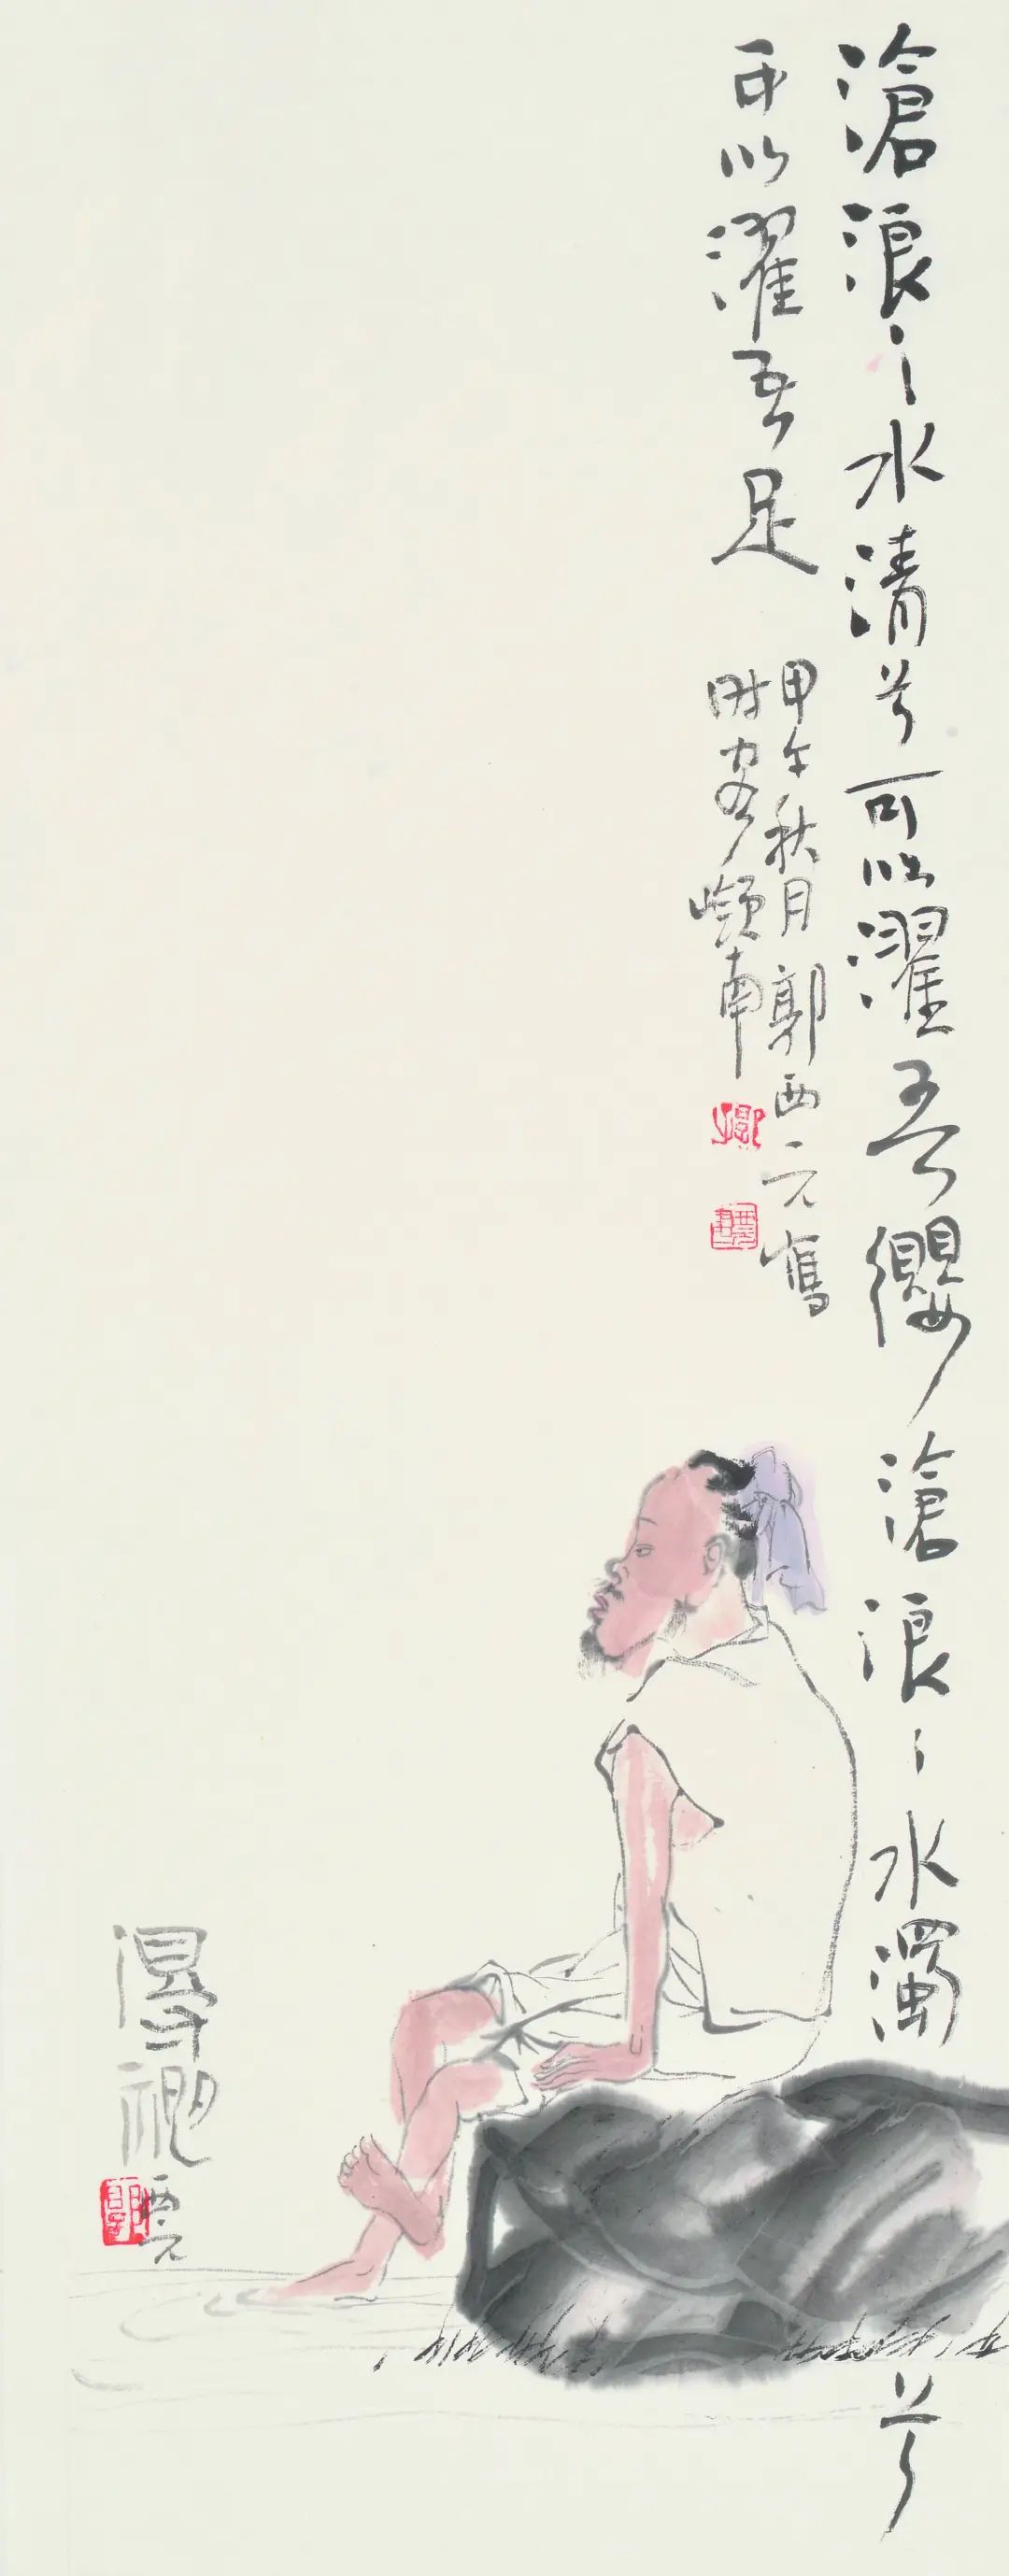 滄浪之水清兮可以濯吾纓滄浪之水濁兮
可以濯吾足
甲午秋月郭西元
时客嶺南
西元
郭